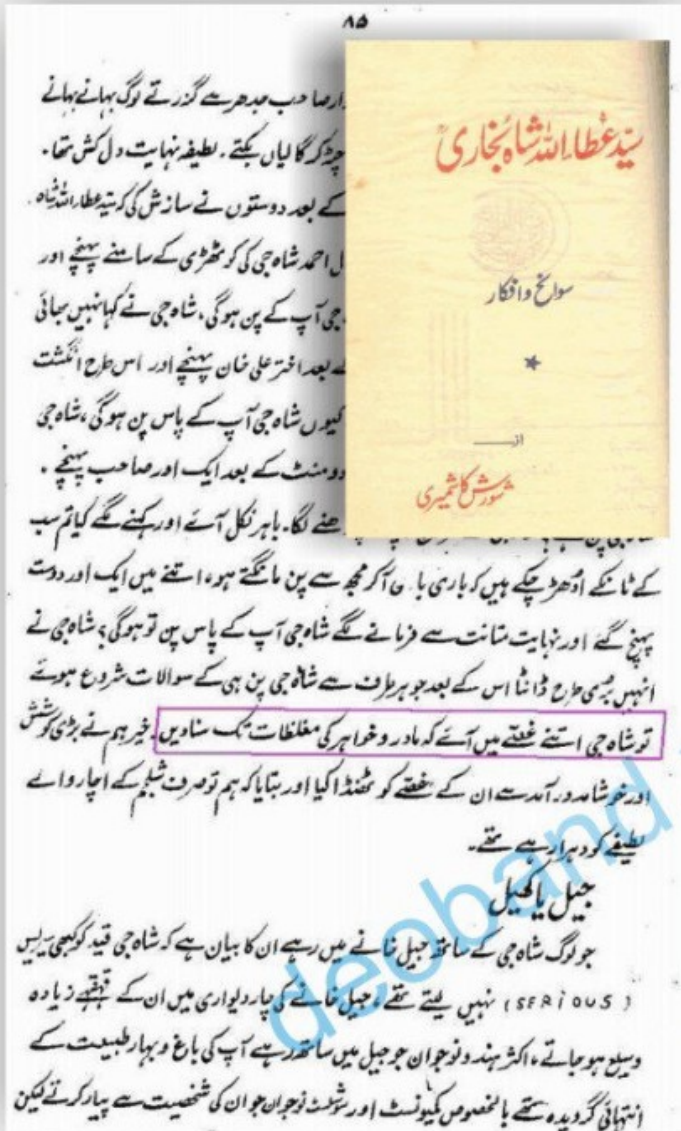 ۸۵
ارصاحب جدھر سے گزرتے لوگ بہانے بہانے
چڑ کر گالیاں بکتے۔ لطیفہ نہایت دل کش تھا۔
کے بعد دوستوں نے سازش کی کہ سید عطاء اللہ شاہ
ل احمد شاہ جی کی کوٹھڑی کے سامنے پہنچے اور
جی آپ کے پن ہوگی، شاہ جی نے کہا نہیں بھائی
بعد اختر علی خان پہنچے اور اس طرح انگشت
کیوں شاہ جی آپ کے پاس پن ہوگی، شاہ جی
دو منٹ کے بعد ایک اور صاحب پہنچے۔
ھنے لگا۔ باہر نکل آئے اور کہنے لگے کیا تم سب
کے ٹانکے اُدھڑ چکے ہیں کہ باری باری آکر مجھ سے پن مانگتے ہو، اتنے میں ایک اور دوست
پہنچ گئے اور نہایت متانت سے فرمانے لگے شاہ جی آپ کے پاس پن تو ہوگی؟ شاہ جی نے
انہیں بُری طرح ڈانٹا اس کے بعد جو ہر طرف سے شاہ جی پن ہی کے سوالات شروع ہوئے
تو شاہ جی اتنے غصّے میں آئے کہ مادر و خواہر کی مغلظات تک سنا دیں۔ خیر ہم نے بڑی کوشش
اور خوشامد درآمد سے ان کے غصے کو ٹھنڈا کیا اور بتایا کہ ہم تو صرف شلجم کے اچار والے
لطیفے کو دہرا رہے تھے۔
جیل یا کھیل
جو لوگ شاہ جی کے ساتھ جیل خانے میں رہے ان کا بیان ہے کہ شاہ جی قید کو کبھی سیریس
(SERIOUS) نہیں لیتے تھے، جیل خانے کی چار دیواری میں ان کے قہقہے زیادہ
وسیع ہو جاتے، اکثر ہندو نوجوان جو جیل میں ساتھ رہے آپ کی باغ و بہار طبیعت کے
انتہائی گرویدہ تھے بالخصوص کمیونسٹ اور سوشلسٹ نوجوان جو ان کی شخصیت سے پیار کرتے لیکن
سیّد عطاء اللہ شاہ بخاری
سوانح و افکار
از
شورش کاشمیری
deoband